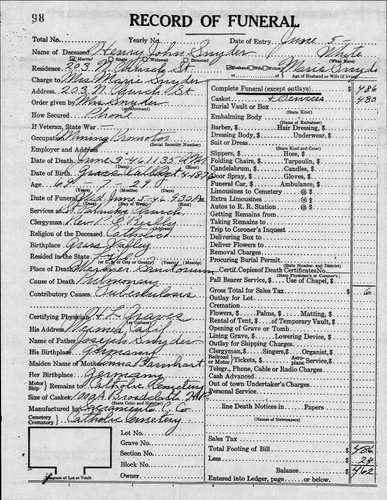 98
RECORD OF FUNERAL
Total No. Yearly No. Date of Entry June 5
Name of Deceased Henry John Snyder White
Residence 203 N. Church St.
Charge to Mrs. Marie Snyder
Address 203 N. Church St.
Order given by Mrs. Snyder
How Secured Phone
If Veteran, State War
Occupation Mining Promotor
(Social Security Number)
Employer and Address
Date of Death June 5-46 11:35
Date of Birth Grass Valley
Age 69 7 29
Date of Funeral Wed June 5-46 9:30 AM
Services at St. Patricks Church
Clergyman Rev. P. C. Reilly
Religion of the Deceased Catholic
Birthplace Grass Valley
Resided in the State Life
Place of Death Weimar Sanatorium
Cause of Death Pulmonary
Contributory Causes Tuberculosis
Certifying Physician
His Address Weimar Calif
Name of Father Joseph Snyder
His Birthplace Germany
Maiden Name of Mother
Her Birthplace Germany
Remains to Catholic Cemetery
Size of Casket
(State Color and Number)
Manufactured by Sacramento C. Co
Cemetery Catholic Cemetery
Crematory
Diagram of Lot or Vault
Lot No.
Grave No.
Section No.
Block No.
Owner
Complete Funeral (except outlays) $ 486
Casket & Services 480
Burial Vault or Box
(State Kind)
Embalming Body
Barber, $ Hair Dressing, $
Dressing Body, $ Underwear, $
Suit or Dress
(State Kind and Color)
Slippers, $ Hose, $
Folding Chairs, $ Tarpaulin, $
Candelabrum, $ Candles, $
Door Spray, $ Gloves, $
Funeral Car, $ Ambulance, $
Limousines to Cemetery @ $
Extra Limousines @ $
Autos to R. R. Station @ $
Getting Remains from
Taking Remains to
Trip to Coroner's Inquest
Delivering Box to
Deliver Flowers to
Removal Charges
Procuring Burial Permit
Certif. Copies of Death Certificates No.
Pall Bearer Service, $ Use of Chapel, $
Gross Total for Sales Tax $ 6
Outlay for Lot
Cremation
Flowers, $ Palms, $ Matting, $
Rental of Tent, $ of Temporary Vault, $
Opening of Grave or Tomb
Lining Grave, $ Lowering Device, $
Outlay for Shipping Charges
Clergyman, $ Singers, $ Organist, $
Telegr., Phone, Cable or Radio Charges
Cash Advanced
Out of town Undertaker's Charges
Personal Service
line Death Notices in Papers
Sales Tax
Total Footing of Bill $ 486
Less 24
Balance $ 462
Entered into Ledger, page or below.